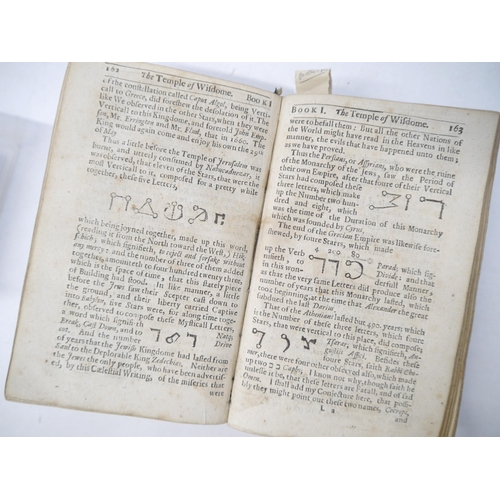 162 The Temple of Wisdome. BOOK I
of the constillation called Caput Algol, being Verti-
call to Greece, did foreshew the desolation of it. The
like We observed in the other Stars, when they were
Verticall to this Kingdome, and foretold John Emp-
for, Mr. Errington and Mr. Flud, that in 1660. The
King would again come and enjoy his own the 29th
of May
That a little before the Temple of Jerusalem was
burnt, and utterly consumed by Nabucadnezar, it
was observed, that eleven of the Stars that were the
most Verticall to it, composed for a pretty while
together, these five Letters,
which being joyned together, made up this word,
(reading it from the North toward the West,) Hik-
schich, which signifieth, to reject and forsake without
any mercy: and the number of three of them added
together, amounteth to four hundred twenty three,
which is the space of time, that this stately piece
of Building had stood. In like manner, a little
before the Jews saw their Scepter cast down to
the ground, and their liberty carried Captive
into Babylon, five Stars were, for along time toge-
ther, observed to compose these Mysticall Letters,
a word which signifieth Natsh
Break, Cast Down, Drive
out. And the number
of years that the Jewish Kingdome had lasted from
Saul to the Deplorable King Zedechias. Neither are
the Jews the only people, who have been advertis-
ed, by this Cælestial Writing, of the miseries that
were
BOOK I. The Temple of Wisdome. 163
were to befall them: But all the other Nations of
the World might have read in the Heavens in like
manner, the evils that have happened unto them;
as we have proved.
Thus the Persians, or Assyrians, who were the ruine
of the Monarchy of the Jews, saw the Period of
their own Empire, after that foure of their Vertical
Stars had composed these
three letters, which make
up the Number two hun-
dred and eight, which
was the time of the Duration of this Monarchy
The end of the Grecian Empire was likewise fore-
shewed, by foure Starrs, which made
up the Verb 4 200 80 Parad; which sig-
nifieth, to Divide: and
in this won- derfull Manner,
that the very same Letters did produce also the
number of years that this Monarchy lasted, which
together, make up the time that Alexander the great
subdued the last Darius
That of the Athenians lasted but 490. years which
is the Number of these three letters, which foure
Stars, that were vertical to this place, did compose
Tsarar, which signifieth, An-
guistiis Affici. Besides these
foure Stars, saith Rabbi Cho-
mer, there were four other observed also, which made
up two כ כ Capps, I know not why, though saith he
unlesse it be, that these letters are Fatall, and of sad
Omen. I shall add my Conjecture here, that pos-
sibly they might point out these two names, Cecrops,
L 2 and